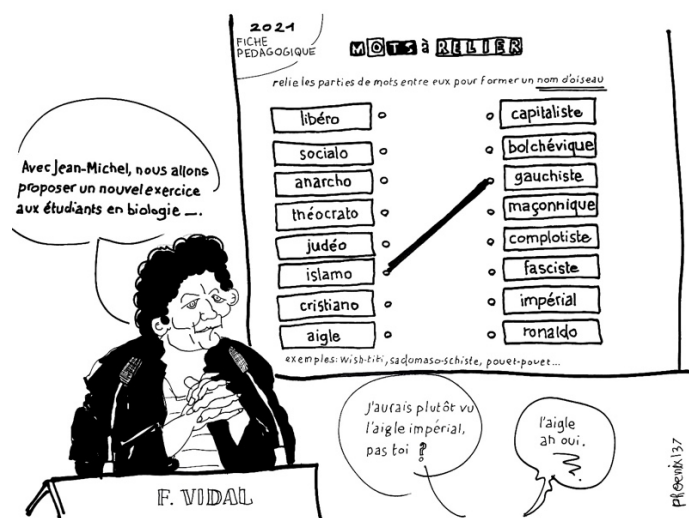 2021
FICHE
PEDAGOGIQUE
MOTS à RELIER
relie les parties de mots entre eux pour former un nom d'oiseau
libéro
socialo
anarcho
théocrato
judéo
islamo
cristiano
aigle
capitaliste
bolchévique
gauchiste
maçonnique
complotiste
fasciste
impérial
ronaldo
exemples: wish-titi, sadomaso-schiste, pouet-pouet...
Avec Jean-Michel, nous allons
proposer un nouvel exercice
aux étudiants en biologie ...
F. VIDAL
J'aurais plutôt vu
l'aigle impérial,
pas toi ?
l'aigle
ah oui.
PhŒnix137